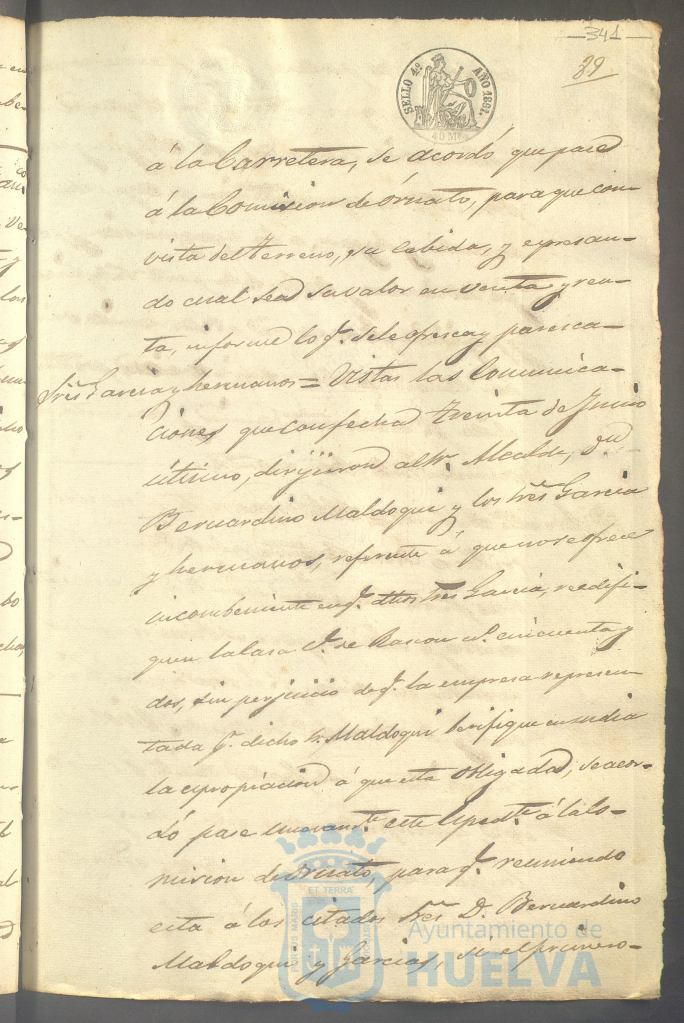 —341—
39
SELLO 4º AÑO 1861.
40 Ms.
á la Carretera, se acordó que pase
á la Comision de órnato, para que con
vista del terreno, su cabida, y espresan-
do cual sea su valor en venta y ren-
ta, informe lo q.e se le ofresca y paresca—
Sres. Garcia y hermanos = Vistas las Comunica-
ciones que con fecha treinta de Junio
último, dirijieron al Sr. Alcalde, Dn
Bernardino Maldoqui y los Sres. Garcia
y hermanos, referente á que no se ofrece
incombeniente en q.e dhos Sres Garcia, reedifi-
quen la Casa C.e de Rascon nº. cincuenta y
dos, sin perjuicio de q.e la empresa represen
tada p.r dicho Sr. Maldoqui berifique en su dia
la espropiacion á que esta obligada, se acor-
dó pase nuevam.te este Espedte. á la Co-
mision de Ornato, para q.e reuniendo
esta á los citados Sres. D. Bernardino
Maldoqui y Garcias, si el primero—
ET TERRA
PORTUS MARIS
CUSTODIA
Ayuntamiento de
HUELVA